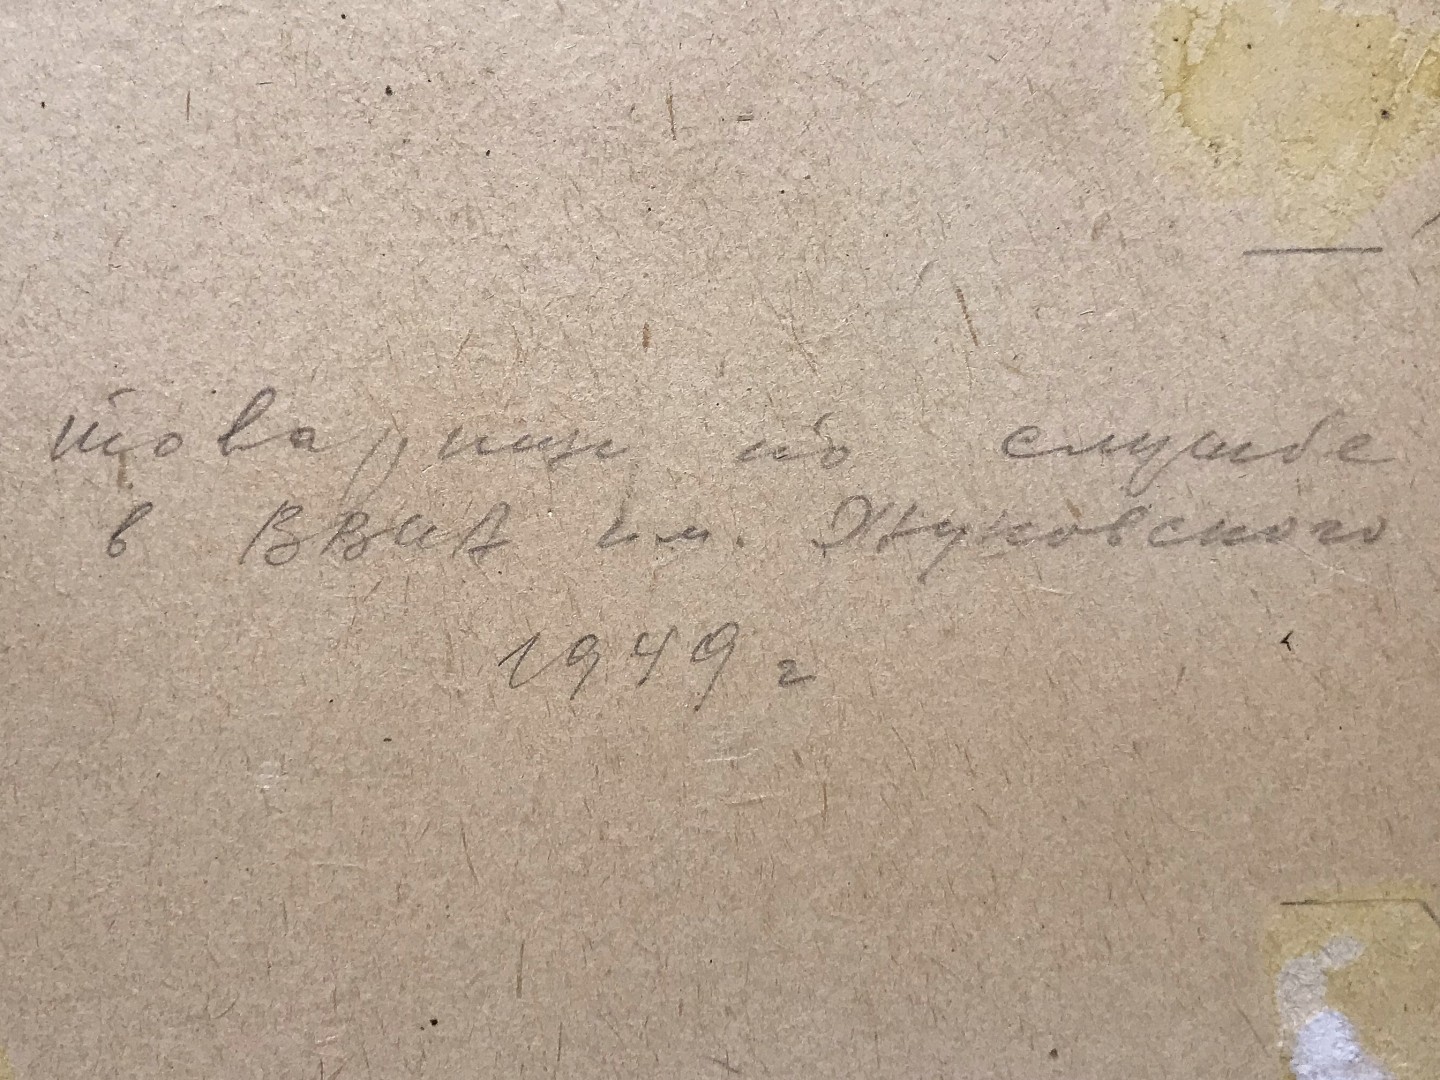 товарищи по службе
в ВВИА им. Жуковского
1949 г